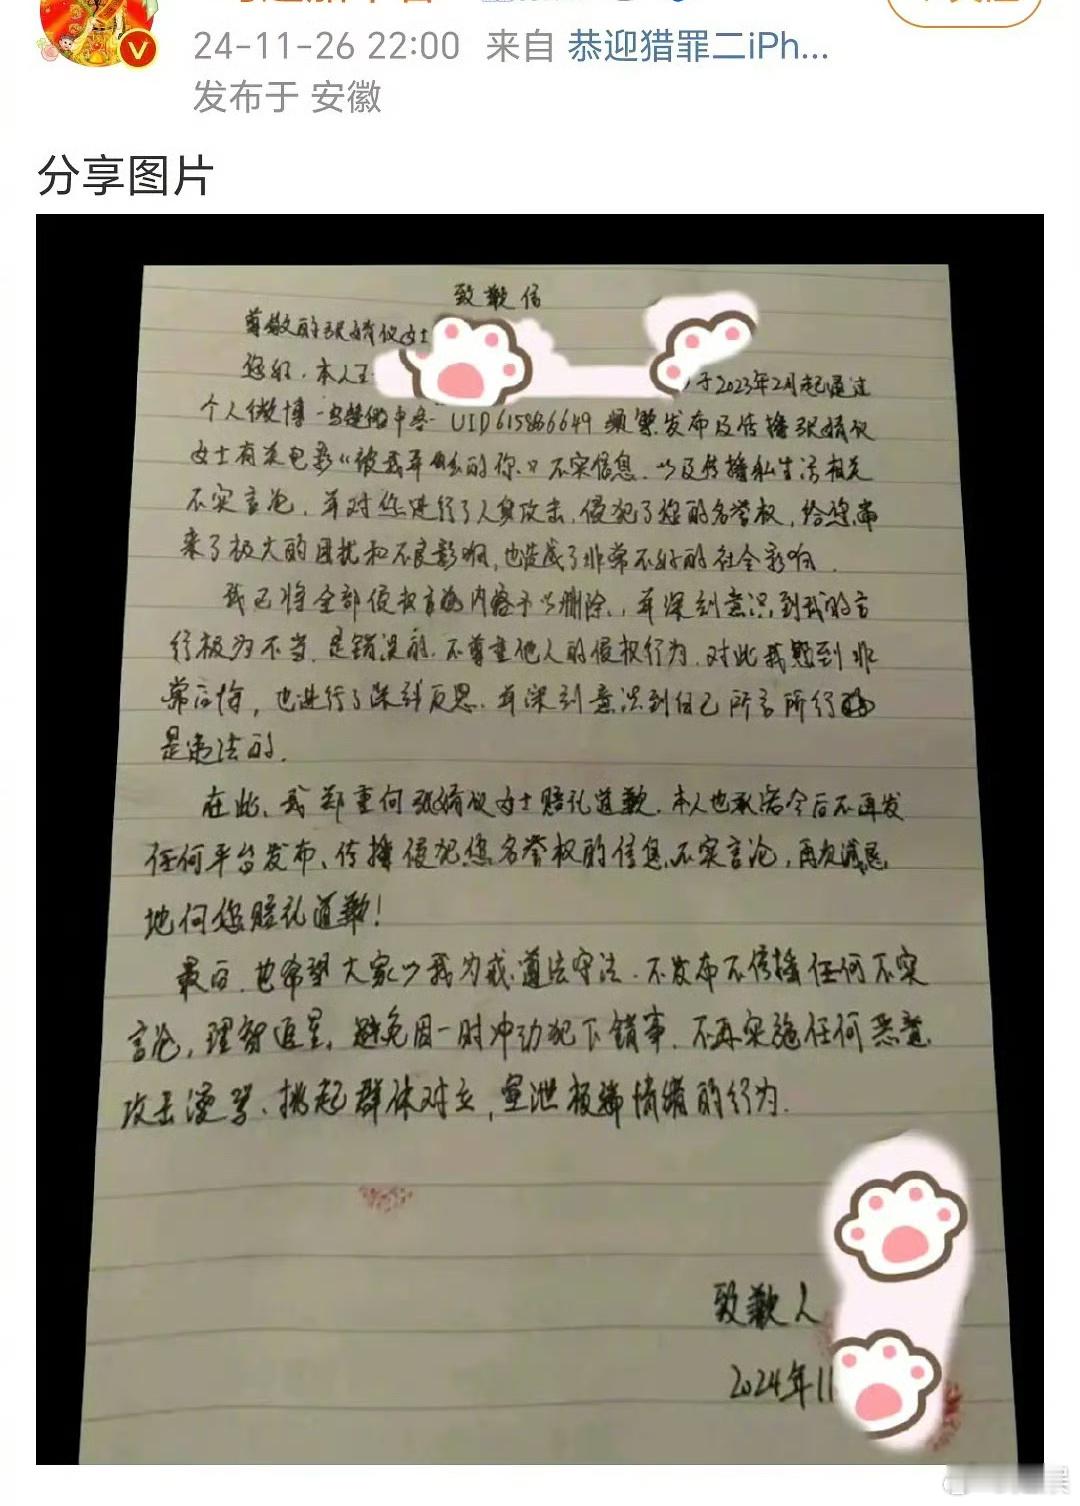 24-11-26 22:00 来自 恭迎猎罪二iPh...
发布于 安徽
分享图片
致歉信
尊敬的张婧仪女士
您好，本人王 于2023年2月起通过
个人微博 UID615866649 频繁发布及传播张婧仪
女士有关电影《被我弄丢的你》不实信息，以及传播私生活相关
不实言论，并对您进行了人身攻击，侵犯了您的名誉权，给您带
来了极大的困扰和不良影响，也造成了非常不好的社会影响．
我已将全部侵权 内容予以删除，并深刻意识到我的言
行极为不当，是错误的，不尊重他人的侵权行为，对此我感到非
常后悔，也进行了深刻反思．并深刻意识到自己所言所行
是违法的．
在此，我郑重向张婧仪女士赔礼道歉．本人也承诺今后不再发
任何平台发布、传播侵犯您名誉权的信息、不实言论，再次诚恳
地向您赔礼道歉！
最后，也希望大家以我为戒，遵法守法．不发布不传播任何不实
言论，理智追星，避免因一时冲动犯下错事．不再实施任何恶意
攻击谩骂、挑起群体对立，宣泄极端情绪的行为．
致歉人
2024年11